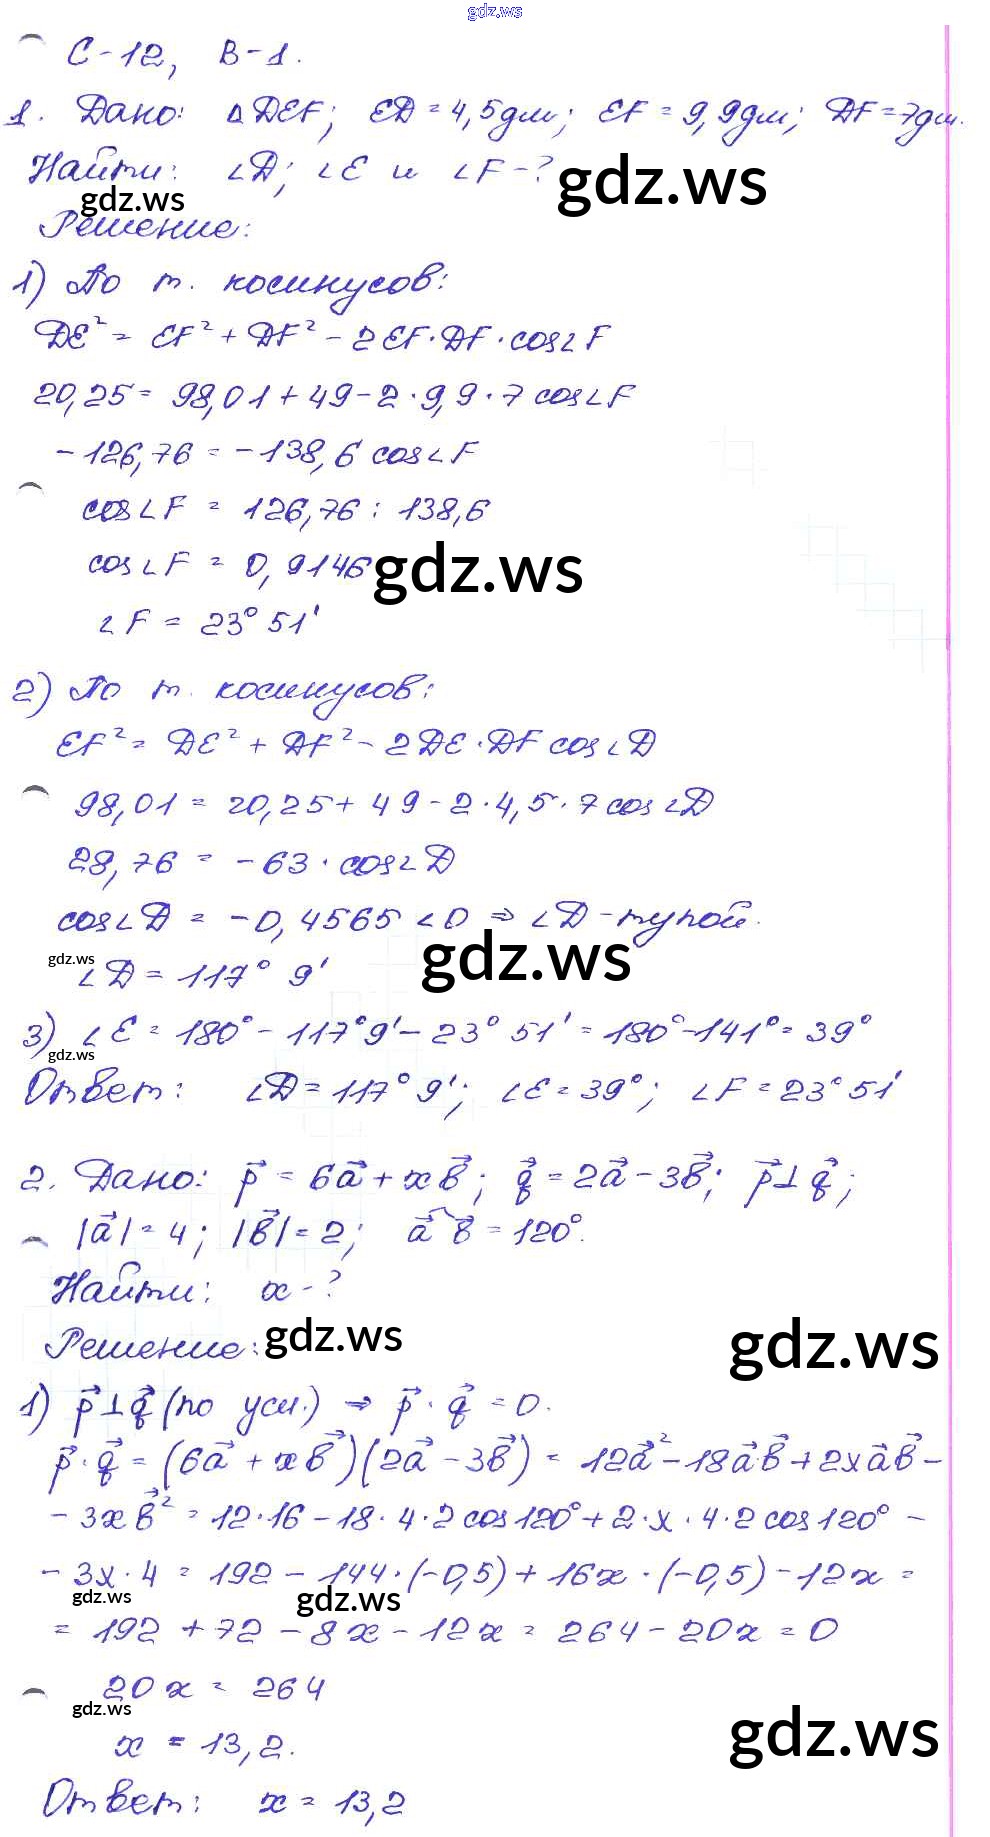 gdz.ws
С-12, В-1.
1. Дано: △DEF; ED = 4,5дм; EF = 9,9дм; DF = 7дм.
Найти: ∠D; ∠E и ∠F - ?
gdz.ws
gdz.ws
Решение:
1) По т. косинусов:
DE² = EF² + DF² - 2EF·DF·cos∠F
20,25 = 98,01 + 49 - 2·9,9·7 cos∠F
-126,76 = -138,6 cos∠F
cos∠F = 126,76 : 138,6
cos∠F = 0,9146
gdz.ws
∠F = 23° 51'
2) По т. косинусов:
EF² = DE² + DF² - 2DE·DF cos∠D
98,01 = 20,25 + 49 - 2·4,5·7 cos∠D
28,76 = -63·cos∠D
cos∠D = -0,4565 < 0 ⇒ ∠D - тупой.
gdz.ws
gdz.ws
∠D = 117° 9'
3) ∠E = 180° - 117°9' - 23° 51' = 180° - 141° = 39°
gdz.ws
Ответ: ∠D = 117° 9'; ∠E = 39°; ∠F = 23° 51'
2. Дано: p⃗ = 6a⃗ + xb⃗; q⃗ = 2a⃗ - 3b⃗; p⃗ ⊥ q⃗;
|a⃗| = 4; |b⃗| = 2; a⃗ ^ b⃗ = 120°.
Найти: x - ?
Решение:
gdz.ws
gdz.ws
1) p⃗ ⊥ q⃗ (по усл.) ⇒ p⃗ · q⃗ = 0.
p⃗ · q⃗ = (6a⃗ + xb⃗)(2a⃗ - 3b⃗) = 12a⃗² - 18a⃗b⃗ + 2xa⃗b⃗ -
- 3xb⃗² = 12·16 - 18·4·2 cos120° + 2·x·4·2 cos120° -
- 3x·4 = 192 - 144·(-0,5) + 16x·(-0,5) - 12x =
gdz.ws
gdz.ws
= 192 + 72 - 8x - 12x = 264 - 20x = 0
20x = 264
gdz.ws
gdz.ws
x = 13,2.
Ответ: x = 13,2